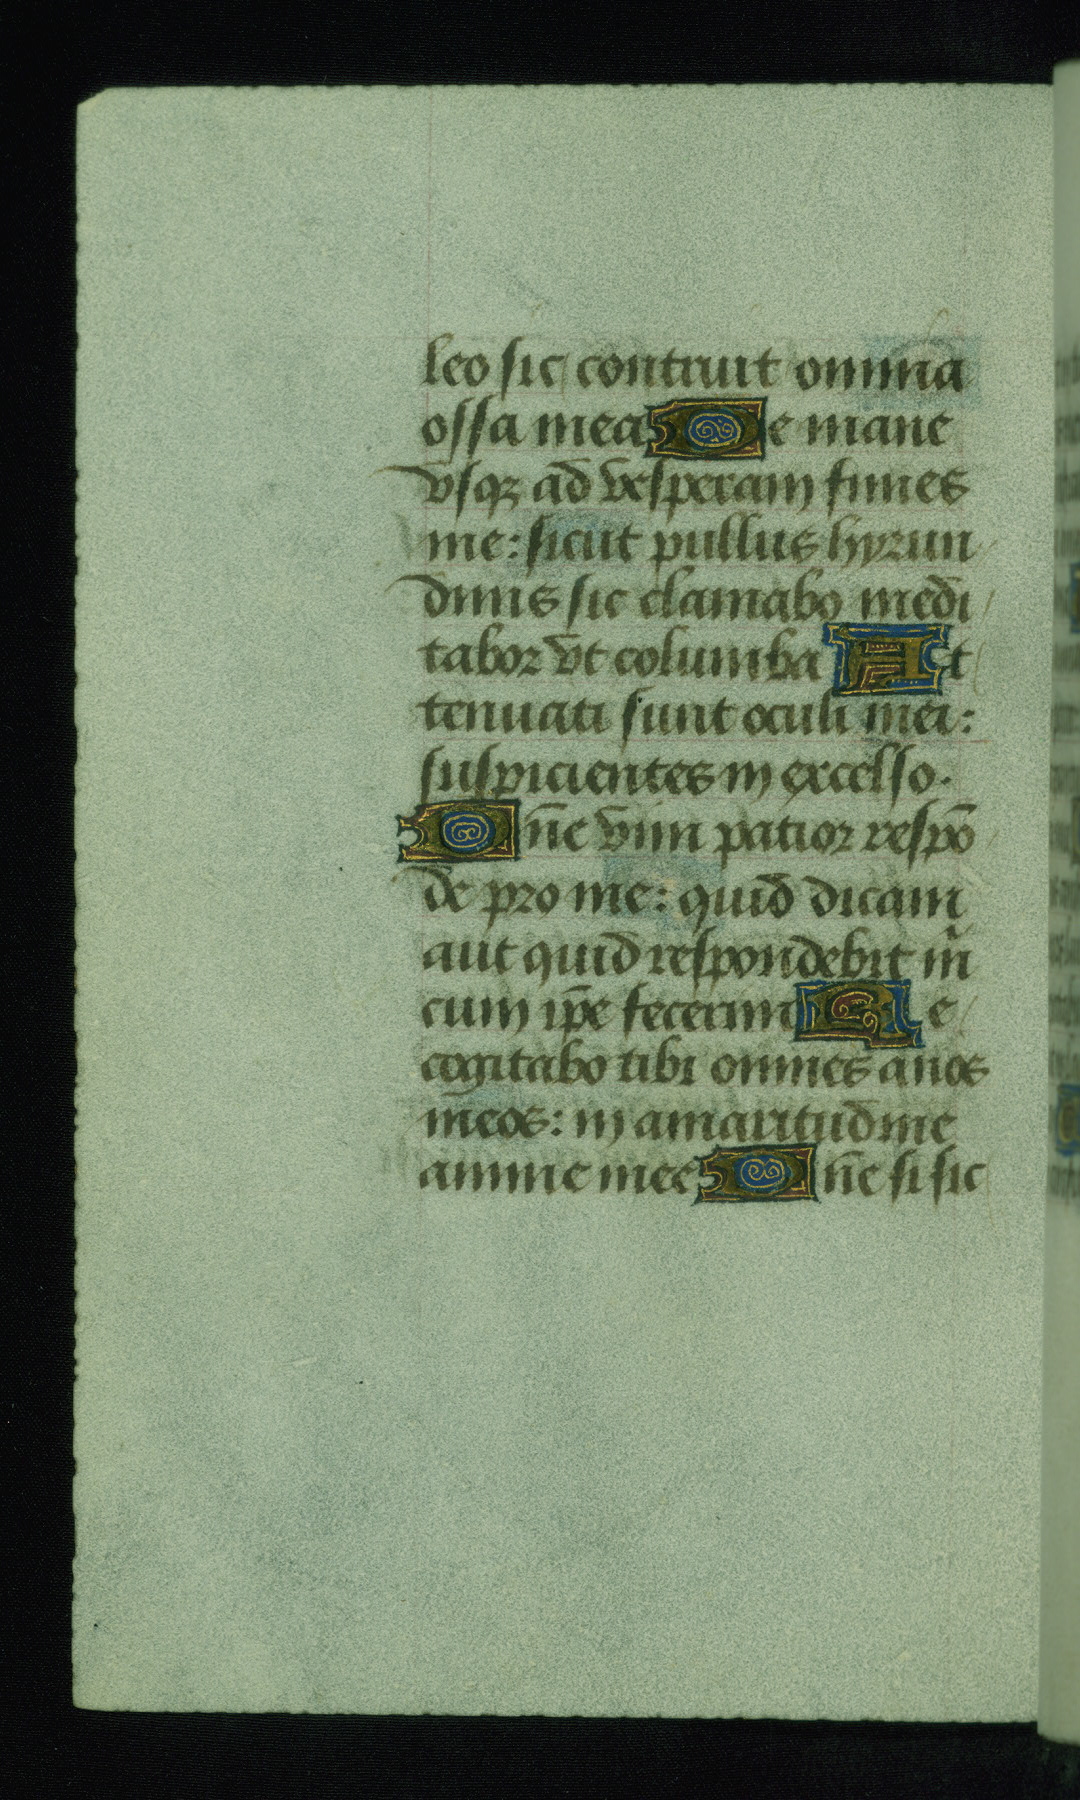 leo sic contriuit omnia
ossa mea De mane
vsqꝫ ad vesperam finies
me: sicut pullus hyrun
dinis sic clamabo medi
tabor vt columba At
tenuati sunt oculi mei:
suspicientes in excelso.
Dn̄e vim patior respō
de pro me: quid dicam
aut quid respondebit m̄
cum ip̄e fecerint Re
cogitabo tibi omnes anos
meos: in amaritudine
anime mee Dn̄e si sic